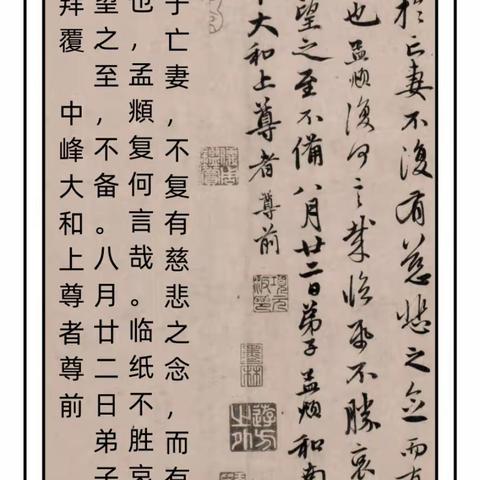 於亡妻不復有慈悲之念而有
也孟頫復何言哉臨紙不勝哀
望之至不備八月廿二日弟子孟頫和南
大和上尊者尊前
墨林
子亡妻，不复有慈悲之念，而有
也，孟頫复何言哉。临纸不胜哀
望之至，不备。八月廿二日弟子
拜覆 中峰大和上尊者尊前